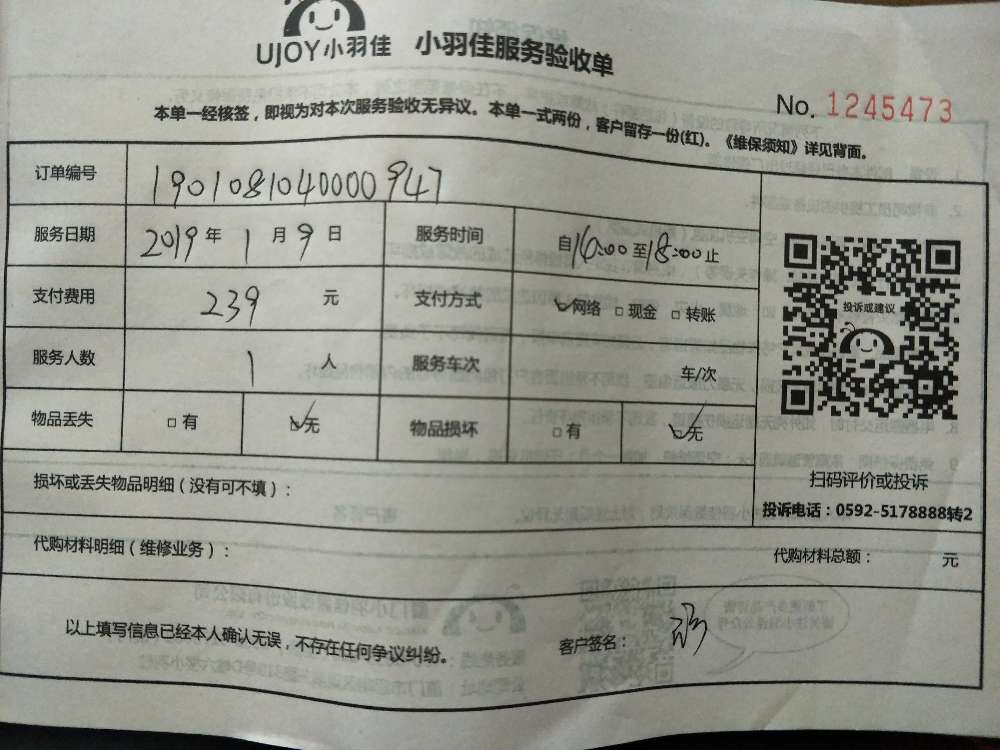 UJOY小羽佳 小羽佳服务验收单
No. 1245473
本单一经核签，即视为对本次服务验收无异议。本单一式两份，客户留存一份(红)。《维保须知》详见背面。
订单编号 1901081040000947
服务日期 2019年1月9日 服务时间 自16:00至18:00止
支付费用 239元 支付方式 ☑网络 □现金 □转账
投诉或建议
服务人数 1人 服务车次 车/次
物品丢失 □有 ☑无 物品损坏 □有 ☑无
扫码评价或投诉
损坏或丢失物品明细（没有可不填）：
投诉电话：0592-5178888转2
代购材料明细（维修业务）： 代购材料总额： 元
以上填写信息已经本人确认无误，不存在任何争议纠纷。 客户签名：